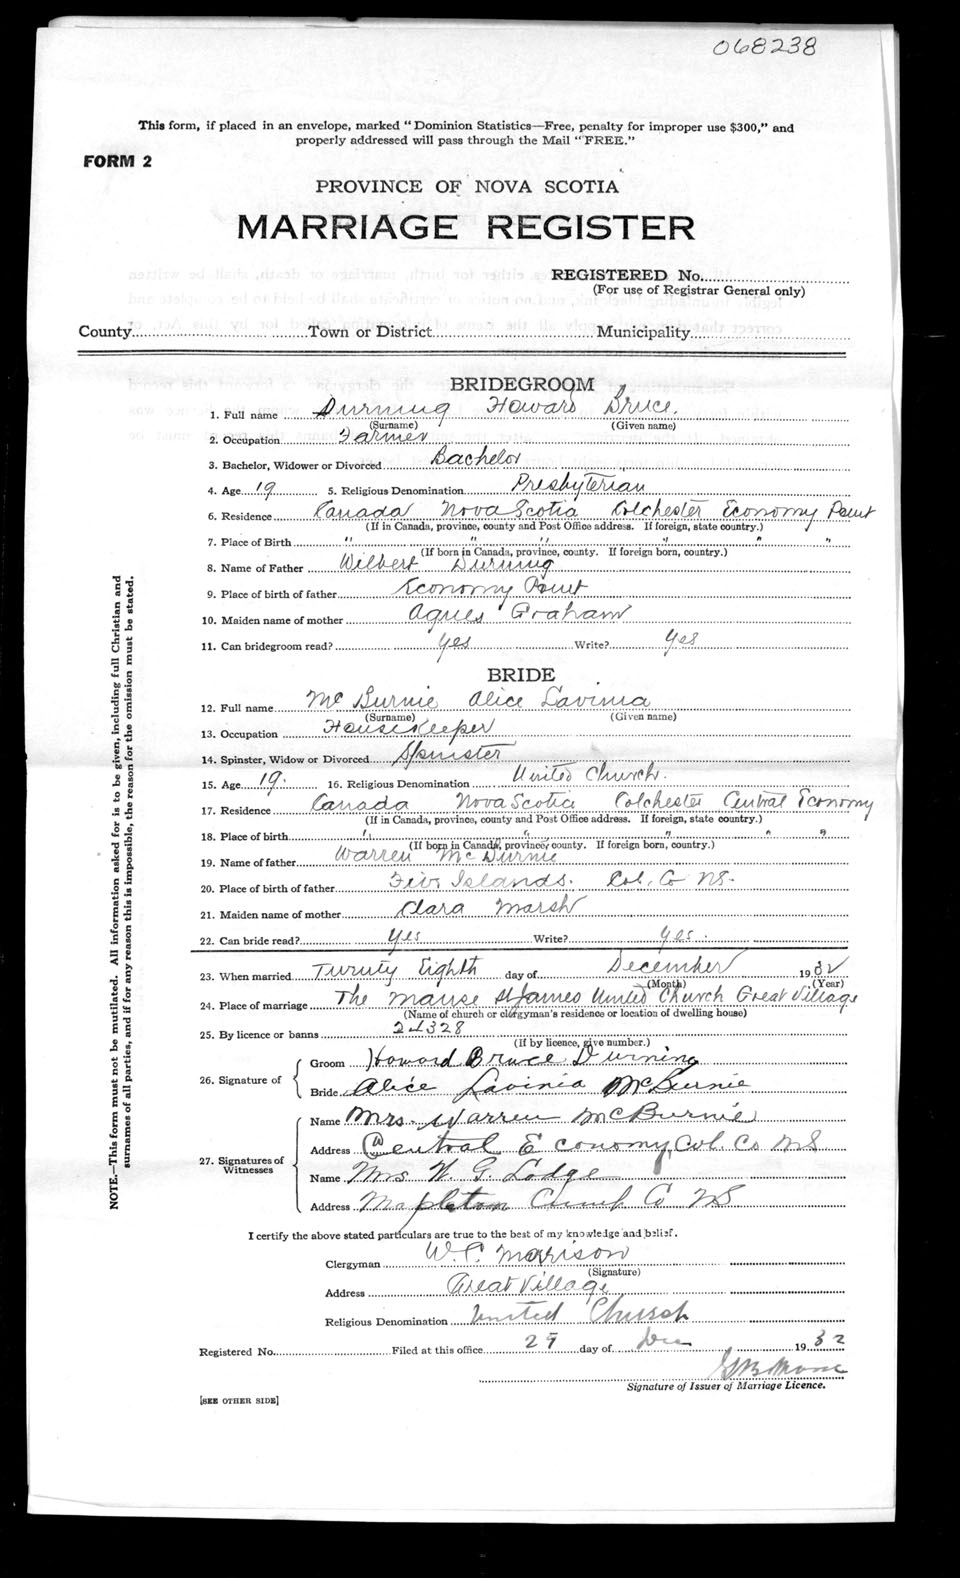 068238
This form, if placed in an envelope, marked "Dominion Statistics—Free, penalty for improper use $300," and
properly addressed will pass through the Mail "FREE."
FORM 2
PROVINCE OF NOVA SCOTIA
MARRIAGE REGISTER
REGISTERED No.
(For use of Registrar General only)
County Town or District Municipality
BRIDEGROOM
1. Full name Durning Howard Bruce.
(Surname) (Given name)
2. Occupation Farmer
3. Bachelor, Widower or Divorced Bachelor
4. Age 19 5. Religious Denomination Presbyterian
6. Residence Canada Nova Scotia Colchester Economy Point
(If in Canada, province, county and Post Office address. If foreign, state country.)
7. Place of Birth " " " " " "
(If born in Canada, province, county. If foreign born, country.)
8. Name of Father Wilbert Durning
9. Place of birth of father Economy Point
10. Maiden name of mother Agnes Graham
11. Can bridegroom read? yes Write? yes
BRIDE
12. Full name McBurnie Alice Lavinia
(Surname) (Given name)
13. Occupation HouseKeeper
14. Spinster, Widow or Divorced Spinster
15. Age 19. 16. Religious Denomination United Church.
17. Residence Canada Nova Scotia Colchester Central Economy
(If in Canada, province, county and Post Office address. If foreign, state country.)
18. Place of birth " " " " "
(If born in Canada, province, county. If foreign born, country.)
19. Name of father Warren McBurnie
20. Place of birth of father Five Islands. Col. Co NS.
21. Maiden name of mother Clara Marsh
22. Can bride read? yes Write? yes.
23. When married Twenty Eighth day of December 1932
(Month) (Year)
24. Place of marriage The Manse St James United Church Great Village
(Name of church or clergyman's residence or location of dwelling house)
25. By licence or banns 24328
(If by licence, give number.)
26. Signature of Groom Howard Bruce Durning
Bride Alice Lavinia McBurnie
27. Signatures of Witnesses Name Mrs. Warren McBurnie
Address Central Economy, Col. Co NS
Name Mrs W. G. Lodge
Address Mapleton Cumb Co NS
I certify the above stated particulars are true to the best of my knowledge and belief.
Clergyman Morrison
(Signature)
Address Great Village
Religious Denomination United Church
Registered No. Filed at this office 29 day of Dec 1932
Signature of Issuer of Marriage Licence.
[SEE OTHER SIDE]
NOTE.—This form must not be mutilated. All information asked for is to be given, including full Christian and
surnames of all parties, and if for any reason this is impossible, the reason for the omission must be stated.